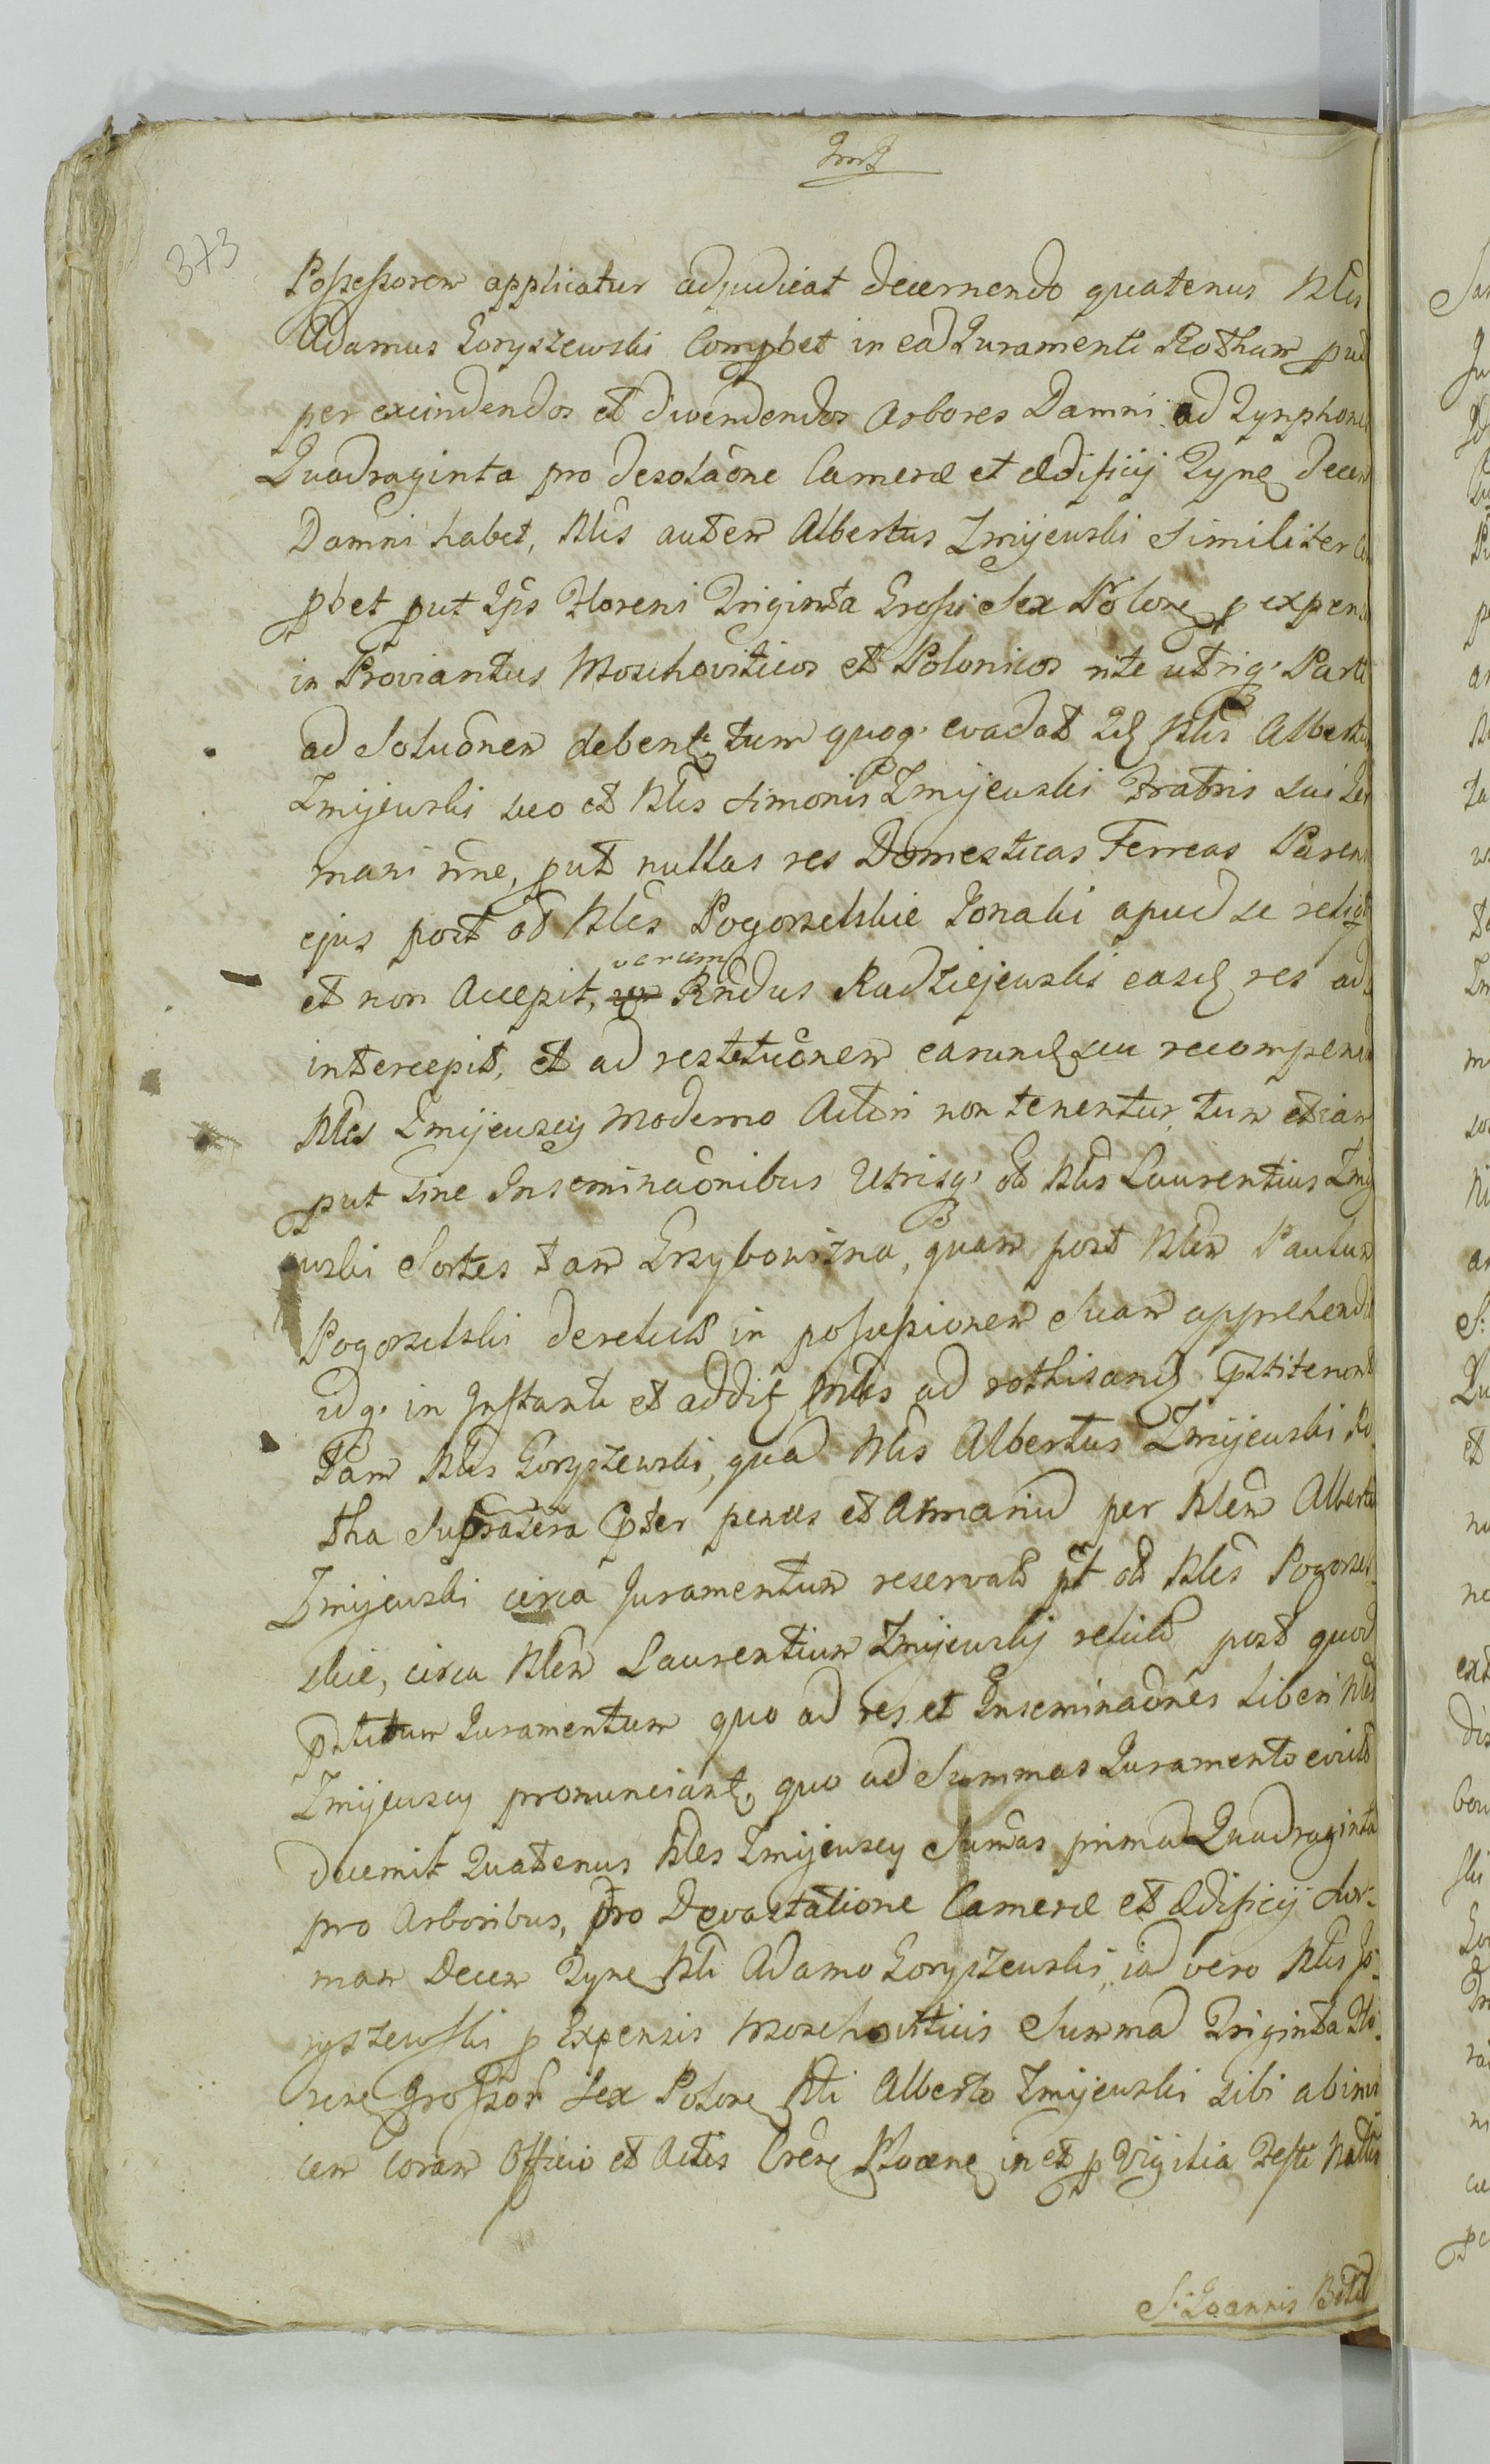 373
Possessorem applicatur adjudicat decernendo quatenus Nlis
Adamus Goryszewski Comp̱bet in ead Juramenti Rotham put
per excindendos et divendendos Arbores Damni ad Tynphones
Quadraginta pro desolaone Cameræ et ædificij Tyne decem
Damni habet, Nlis autem Albertus Zmijewski Similiter
p̱bet p̱ut Ips Floreni Triginta Grossi Sex Polone p̱ expens
in Proviantus Moschoviticos et Polonicos rite utriq Parti
ad Soluonem debent, tum quoq evadat Id Nlis Albertus
Zmijewski suo et Nlis Simonis Zmijewski Fratris sui Ger
mani nne, p̱ut nullas res Domesticas Ferreas Parens
ejus post od Nles Pogorzelskie Jonaki apud se reliqt
et non Accepit, verum Rndus Radziejewski easd res ad
intercepit, et ad restituonem earund seu recompens
Nles Zmijewscy Moderno Actori non tenentur, tum etiam
p̱ut sine Inseminaonibus Utrisq od Nlis Laurentius Zmij
ewski Sortes tam Grzybowizna, quam post Nlem Paulum
Pogorzelski derelict in possessionem Suam apprehendit
idq in Instanti et addit Mtis ad rothisand p̱stiterunt
Tam Nlis Goryszewski, quad Nlis Albertus Zmijewski Ro
tha Supratera p̱ter penes et Armariu per Nlem Albertu
Zmijewski circa Juramentum reservat pt od Nles Pogorzel
skie, circa Nlem Laurentium Zmijewskij relict post quod
p̱stitum Juramentum quo ad res et Inseminaones liberi Nles
Zmijewscy pronunciant, quo ad Summas Juramento evict
decernit Quatenus Nles Zmijewscy Sumas primad Quadraginta
pro Arboribus, pro Devastatione Cameræ et Ædificij Sum-
mam Decem Tyne Nli Adamo Goryszewski, iad vero Nlis Go-
ryszewski p̱ Expensis Moschoviticis Summad Triginta Flo-
rene Grossor Sex Polone Nli Alberto Zmijewski sibi abinvi
cem Coram Officio et Actis Crene Plocene in et p̱ Vigilia Festi Natlis
S: Joannis Bste